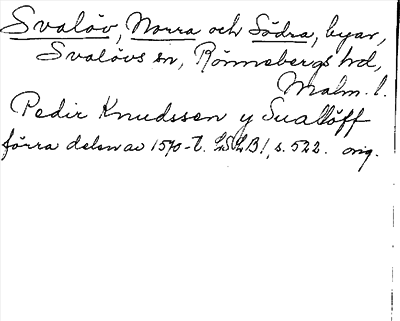 Svalöv, Norra och Södra, byar,
Svalövs sn, Rönnebergs hd,
Malm. l.
Pedir Knudssen y Sualløff
förra delen av 1570-t. LSLB1, s. 522. orig.